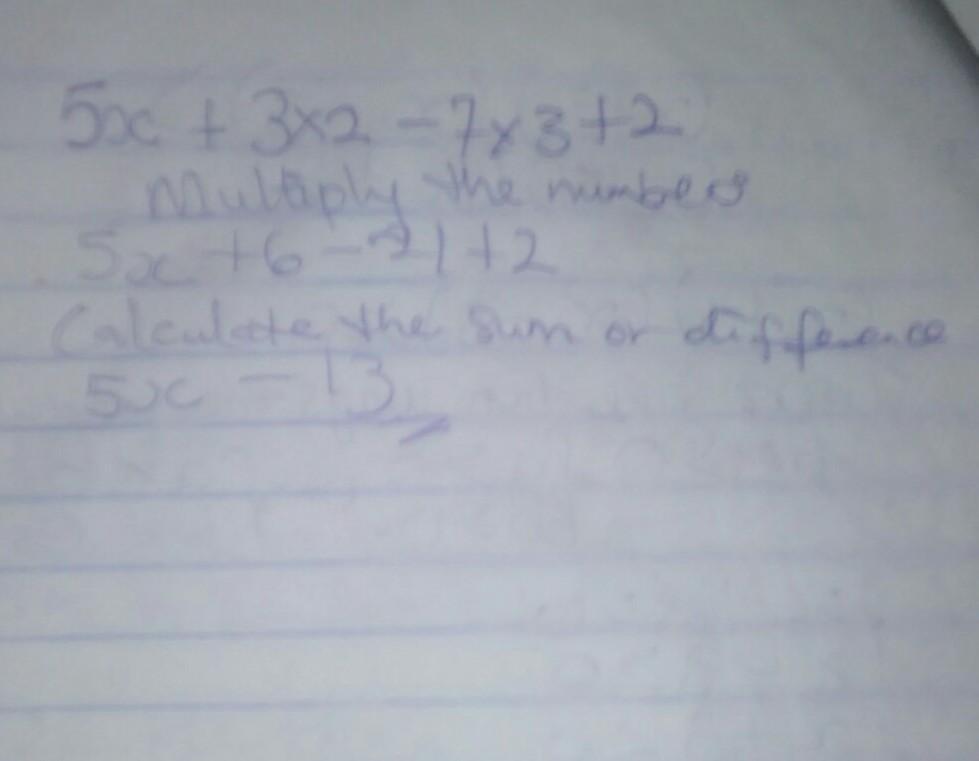 5x + 3×2 - 7×3+2
Multiply the numbers
5x +6 - 21 +2
Calculate the sum or difference
5x - 13